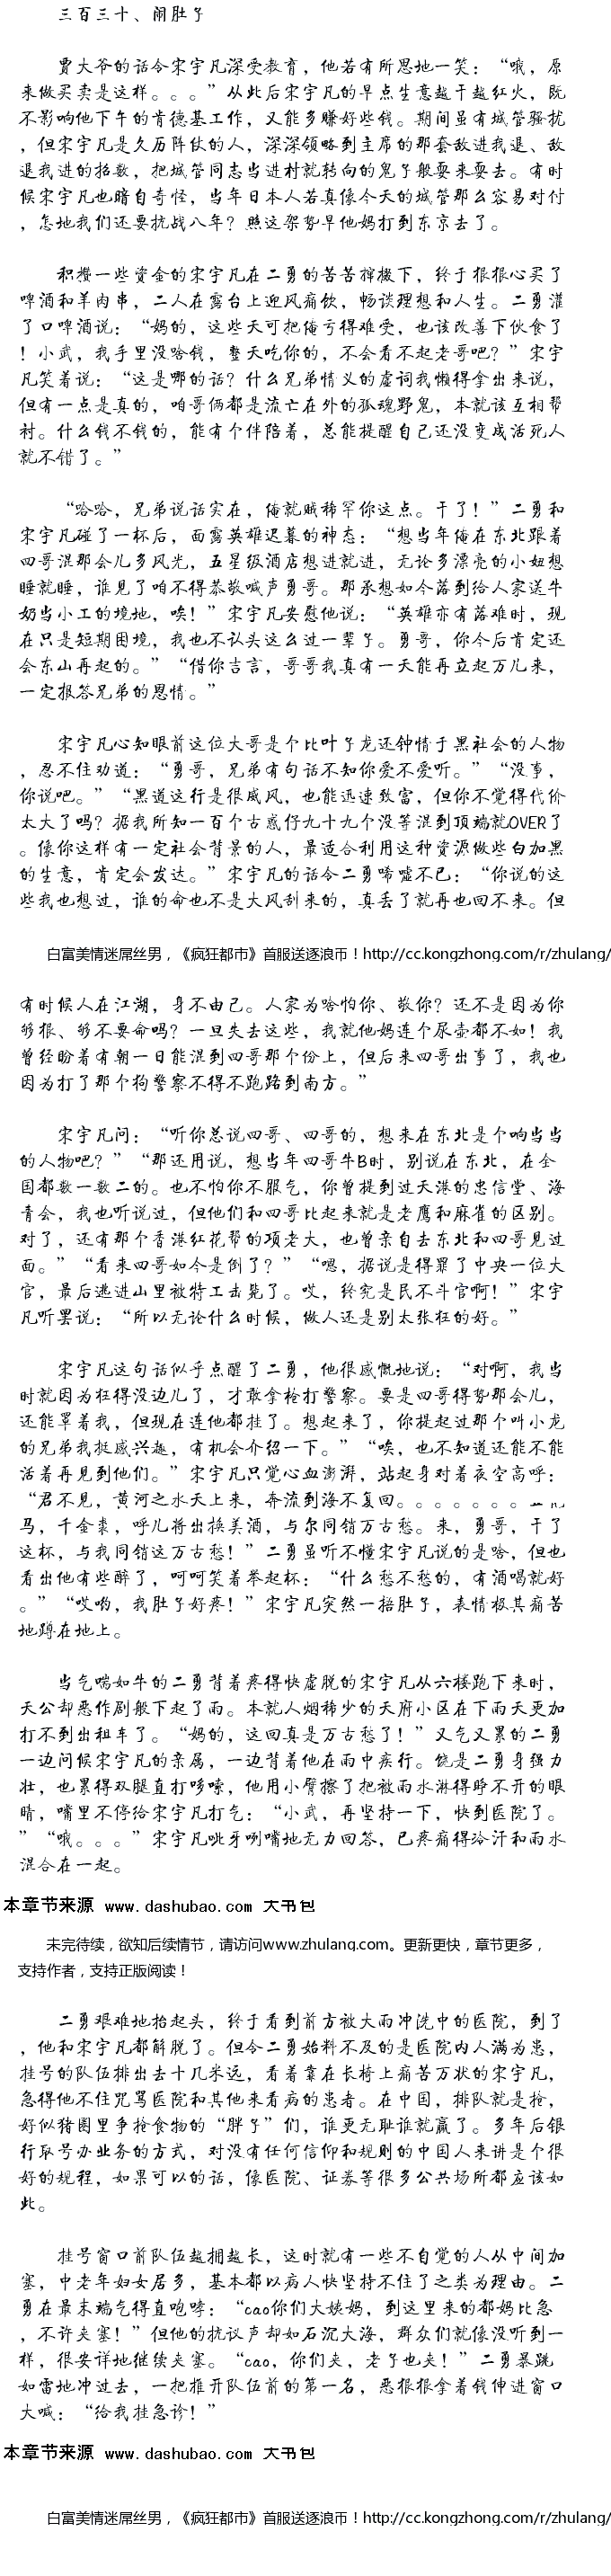 三百三十、闹肚子
贾大爷的话令宋宇凡深受教育，他若有所思地一笑：“哦，原
来做买卖是这样。。。”从此后宋宇凡的早点生意越干越红火，既
不影响他下午的肯德基工作，又能多赚好些钱。期间虽有城管骚扰
，但宋宇凡是久历阵仗的人，深深领略到主席的那套敌进我退、敌
退我进的招数，把城管同志当进村就转向的鬼子般耍来耍去。有时
候宋宇凡也暗自奇怪，当年日本人若真像今天的城管那么容易对付
，怎地我们还要抗战八年？照这架势早他妈打到东京去了。
积攒一些资金的宋宇凡在二勇的苦苦撺掇下，终于狠狠心买了
啤酒和羊肉串，二人在露台上迎风痛饮，畅谈理想和人生。二勇灌
了口啤酒说：“妈的，这些天可把俺亏得难受，也该改善下伙食了
！小武，我手里没啥钱，整天吃你的，不会看不起老哥吧？”宋宇
凡笑着说：“这是哪的话？什么兄弟情义的虚词我懒得拿出来说，
但有一点是真的，咱哥俩都是流亡在外的孤魂野鬼，本就该互相帮
衬。什么钱不钱的，能有个伴陪着，总能提醒自己还没变成活死人
就不错了。”
“哈哈，兄弟说话实在，俺就贼稀罕你这点。干了！”二勇和
宋宇凡碰了一杯后，面露英雄迟暮的神态：“想当年俺在东北跟着
四哥混那会儿多风光，五星级酒店想进就进，无论多漂亮的小妞想
睡就睡，谁见了咱不得恭敬喊声勇哥。那承想如今落到给人家送牛
奶当小工的境地，唉！”宋宇凡安慰他说：“英雄亦有落难时，现
在只是短期困境，我也不认头这么过一辈子。勇哥，你今后肯定还
会东山再起的。”“借你吉言，哥哥我真有一天能再立起万儿来，
一定报答兄弟的恩情。”
宋宇凡心知眼前这位大哥是个比叶子龙还钟情于黑社会的人物
，忍不住劝道：“勇哥，兄弟有句话不知你爱不爱听。”“没事，
你说吧。”“黑道这行是很威风，也能迅速致富，但你不觉得代价
太大了吗？据我所知一百个古惑仔九十九个没等混到顶端就OVER了
。像你这样有一定社会背景的人，最适合利用这种资源做些白加黑
的生意，肯定会发达。”宋宇凡的话令二勇唏嘘不已：“你说的这
些我也想过，谁的命也不是大风刮来的，真丢了就再也回不来。但
白富美情迷屌丝男，《疯狂都市》首服送逐浪币！http://cc.kongzhong.com/r/zhulang/
有时候人在江湖，身不由己。人家为啥怕你、敬你？还不是因为你
够狠、够不要命吗？一旦失去这些，我就他妈连个尿壶都不如！我
曾经盼着有朝一日能混到四哥那个份上，但后来四哥出事了，我也
因为打了那个狗警察不得不跑路到南方。”
宋宇凡问：“听你总说四哥、四哥的，想来在东北是个响当当
的人物吧？”“那还用说，想当年四哥牛B时，别说在东北，在全
国都数一数二的。也不怕你不服气，你曾提到过天港的忠信堂、海
青会，我也听说过，但他们和四哥比起来就是老鹰和麻雀的区别。
对了，还有那个香港红花帮的项老大，也曾亲自去东北和四哥见过
面。”“看来四哥如今是倒了？”“嗯，据说是得罪了中央一位大
官，最后逃进山里被特工击毙了。哎，终究是民不斗官啊！”宋宇
凡听罢说：“所以无论什么时候，做人还是别太张狂的好。”
宋宇凡这句话似乎点醒了二勇，他很感慨地说：“对啊，我当
时就因为狂得没边儿了，才敢拿枪打警察。要是四哥得势那会儿，
还能罩着我，但现在连他都挂了。想起来了，你提起过那个叫小龙
的兄弟我挺感兴趣，有机会介绍一下。”“唉，也不知道还能不能
活着再见到他们。”宋宇凡只觉心血澎湃，站起身对着夜空高呼：
“君不见，黄河之水天上来，奔流到海不复回。。。。。。。五花
马，千金裘，呼儿将出换美酒，与尔同销万古愁。来，勇哥，干了
这杯，与我同销这万古愁！”二勇虽听不懂宋宇凡说的是啥，但也
看出他有些醉了，呵呵笑着举起杯：“什么愁不愁的，有酒喝就好
。”“哎哟，我肚子好疼！”宋宇凡突然一捂肚子，表情极其痛苦
地蹲在地上。
当气喘如牛的二勇背着疼得快虚脱的宋宇凡从六楼跑下来时，
天公却恶作剧般下起了雨。本就人烟稀少的天府小区在下雨天更加
打不到出租车了。“妈的，这回真是万古愁了！”又气又累的二勇
一边问候宋宇凡的亲属，一边背着他在雨中疾行。饶是二勇身强力
壮，也累得双腿直打哆嗦，他用小臂擦了把被雨水淋得睁不开的眼
睛，嘴里不停给宋宇凡打气：“小武，再坚持一下，快到医院了。
”“哦。。。”宋宇凡呲牙咧嘴地无力回答，已疼痛得冷汗和雨水
混合在一起。
本章节来源 www.dashubao.com 大书包
未完待续，欲知后续情节，请访问www.zhulang.com。更新更快，章节更多，
支持作者，支持正版阅读！
二勇艰难地抬起头，终于看到前方被大雨冲洗中的医院，到了
，他和宋宇凡都解脱了。但令二勇始料不及的是医院内人满为患，
挂号的队伍排出去十几米远，看着靠在长椅上痛苦万状的宋宇凡，
急得他不住咒骂医院和其他来看病的患者。在中国，排队就是抢，
好似猪圈里争抢食物的“胖子”们，谁更无耻谁就赢了。多年后银
行取号办业务的方式，对没有任何信仰和规则的中国人来讲是个很
好的规程，如果可以的话，像医院、证券等很多公共场所都应该如
此。
挂号窗口前队伍越拥越长，这时就有一些不自觉的人从中间加
塞，中老年妇女居多，基本都以病人快坚持不住了之类为理由。二
勇在最末端气得直咆哮：“cao你们大姨妈，到这里来的都妈比急
，不许夹塞！”但他的抗议声却如石沉大海，群众们就像没听到一
样，很安详地继续夹塞。“cao，你们夹，老子也夹！”二勇暴跳
如雷地冲过去，一把推开队伍前的第一名，恶狠狠拿着钱伸进窗口
大喊：“给我挂急诊！”
本章节来源 www.dashubao.com 大书包
白富美情迷屌丝男，《疯狂都市》首服送逐浪币！http://cc.kongzhong.com/r/zhulang/